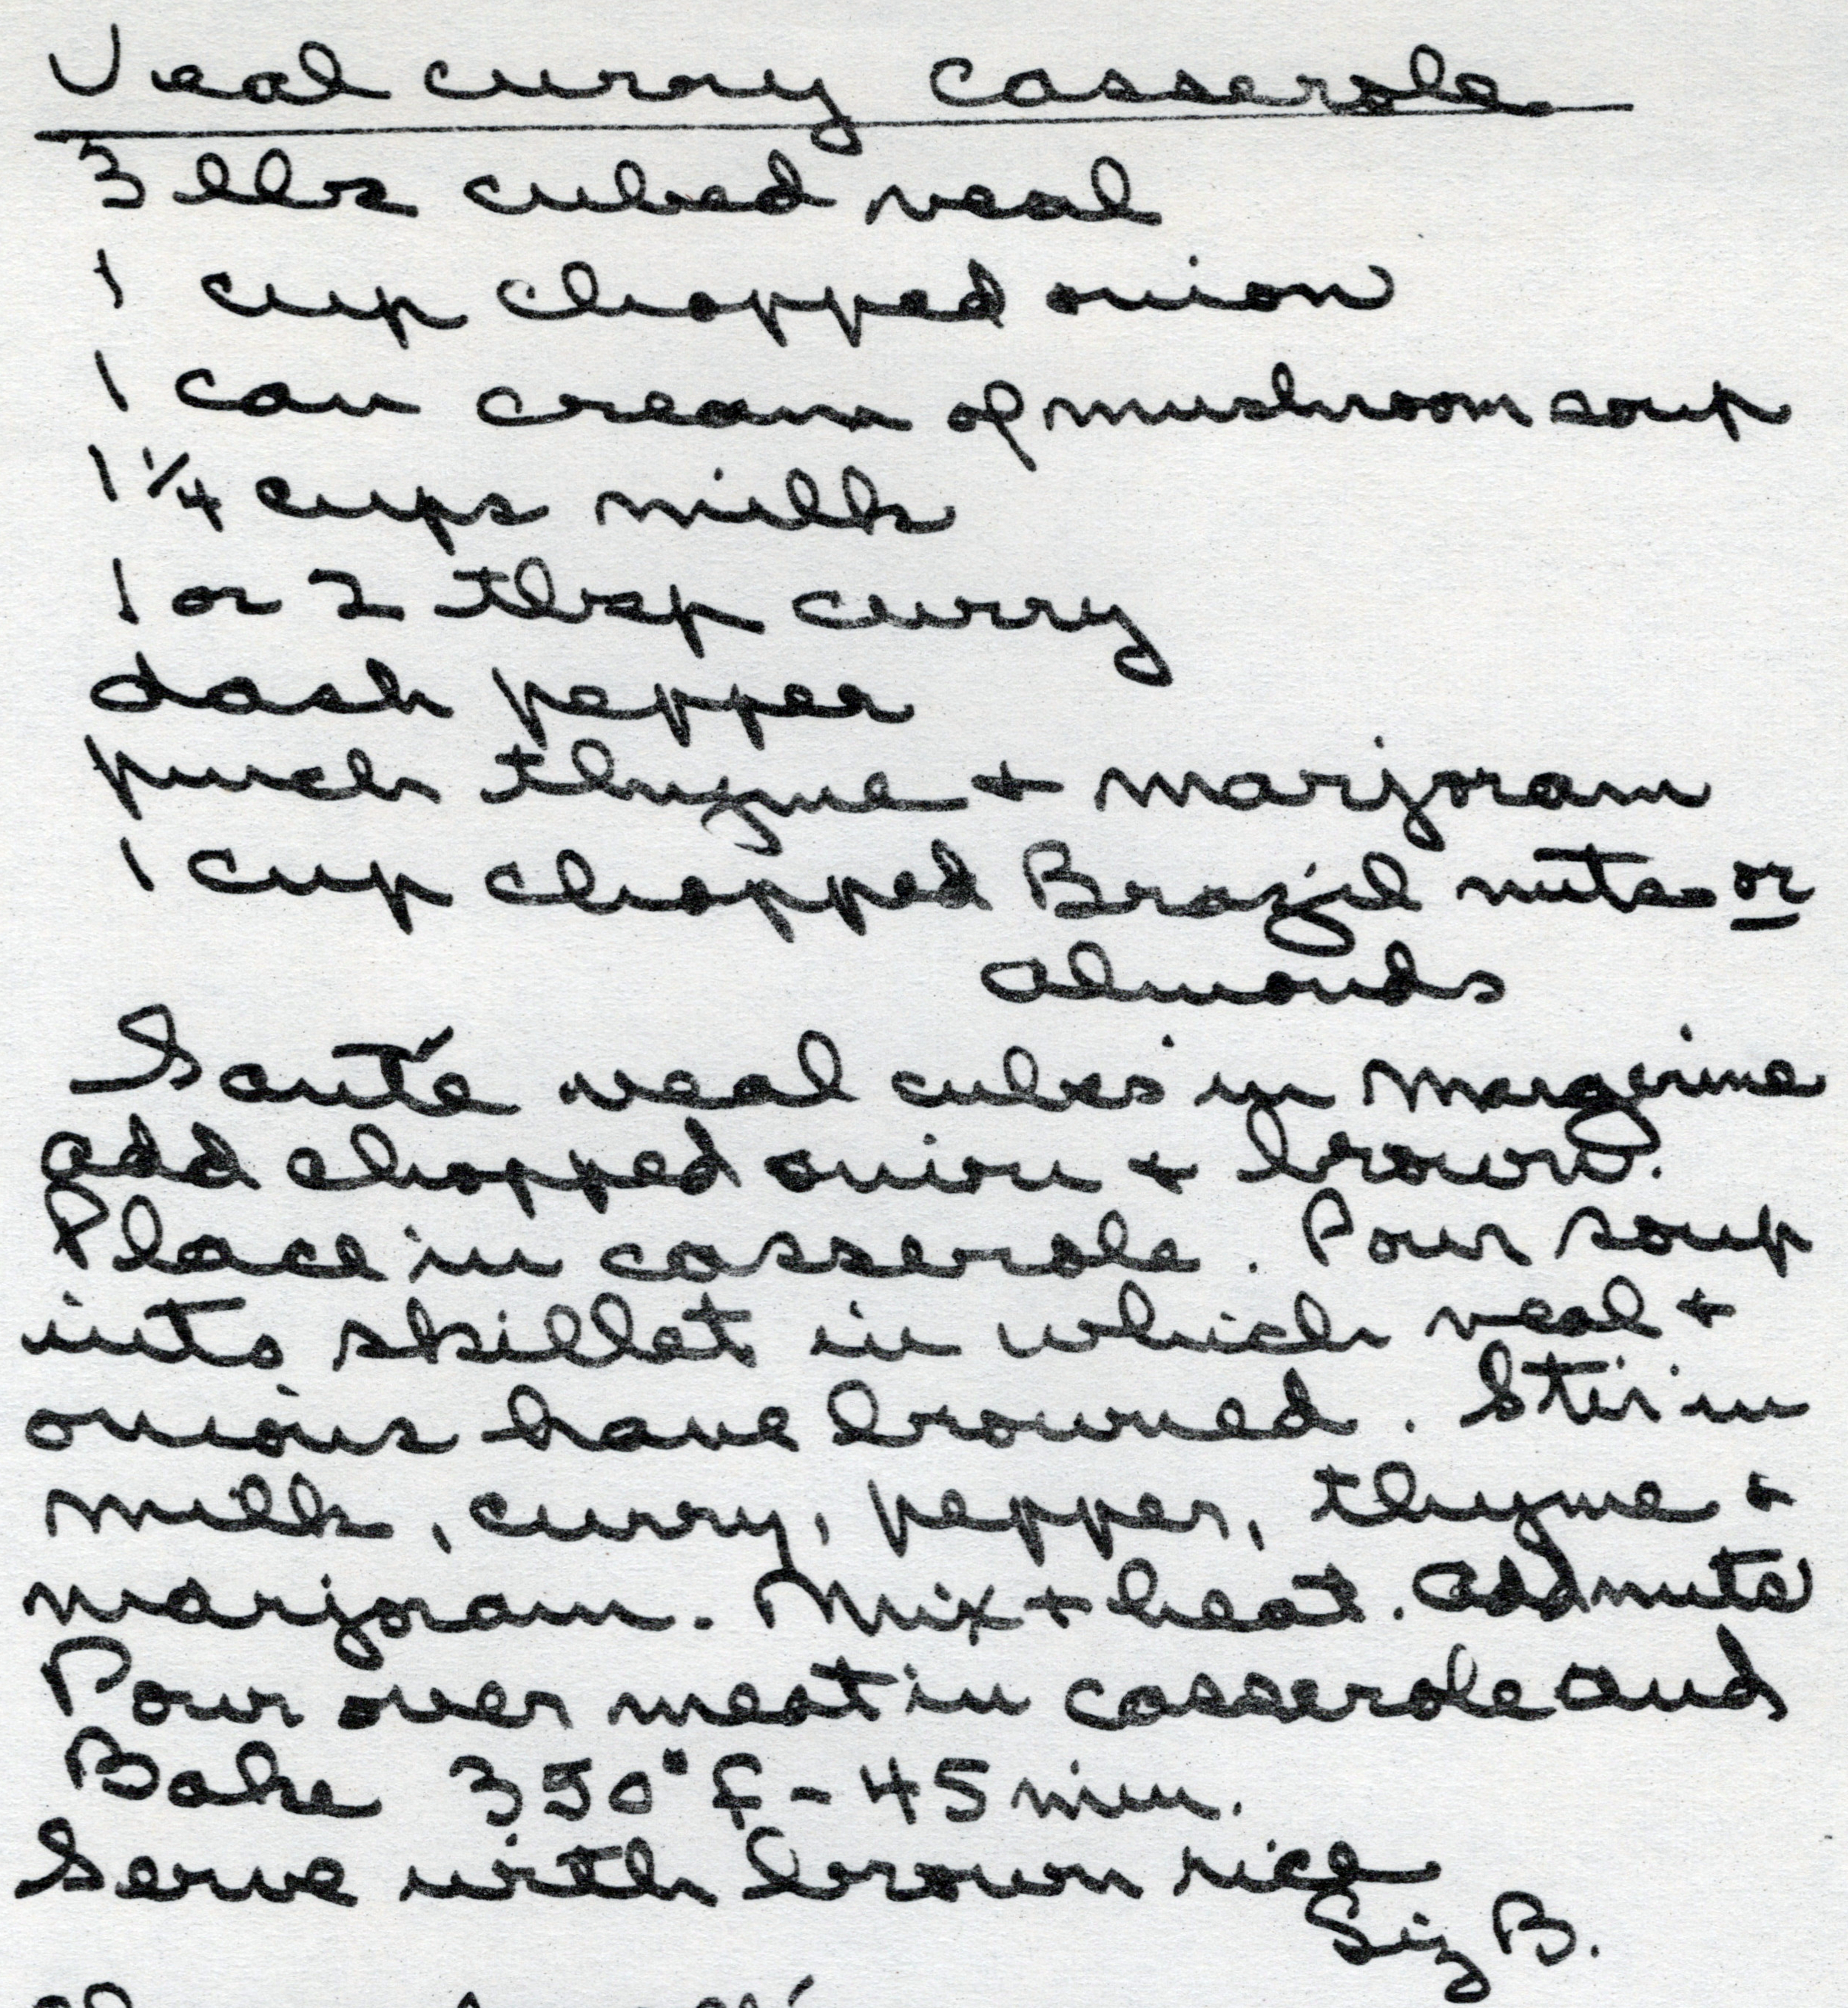 Veal curry casserole
3 lbs cubed veal
1 cup chopped onion
1 can cream of mushroom soup
1 1/4 cups milk
1 or 2 tbsp curry
dash pepper
pinch thyme + marjoram
1 cup chopped Brazil nuts or
almonds
Sauté veal cubes in margerine
add chopped onion + brown.
Place in casserole. Pour soup
into skillet in which veal +
onions have browned. Stir in
milk, curry, pepper, thyme +
marjoram. Mix + heat. Add nuts
Pour over meat in casserole and
Bake 350° F - 45 min.
Serve with brown rice
Liz B.